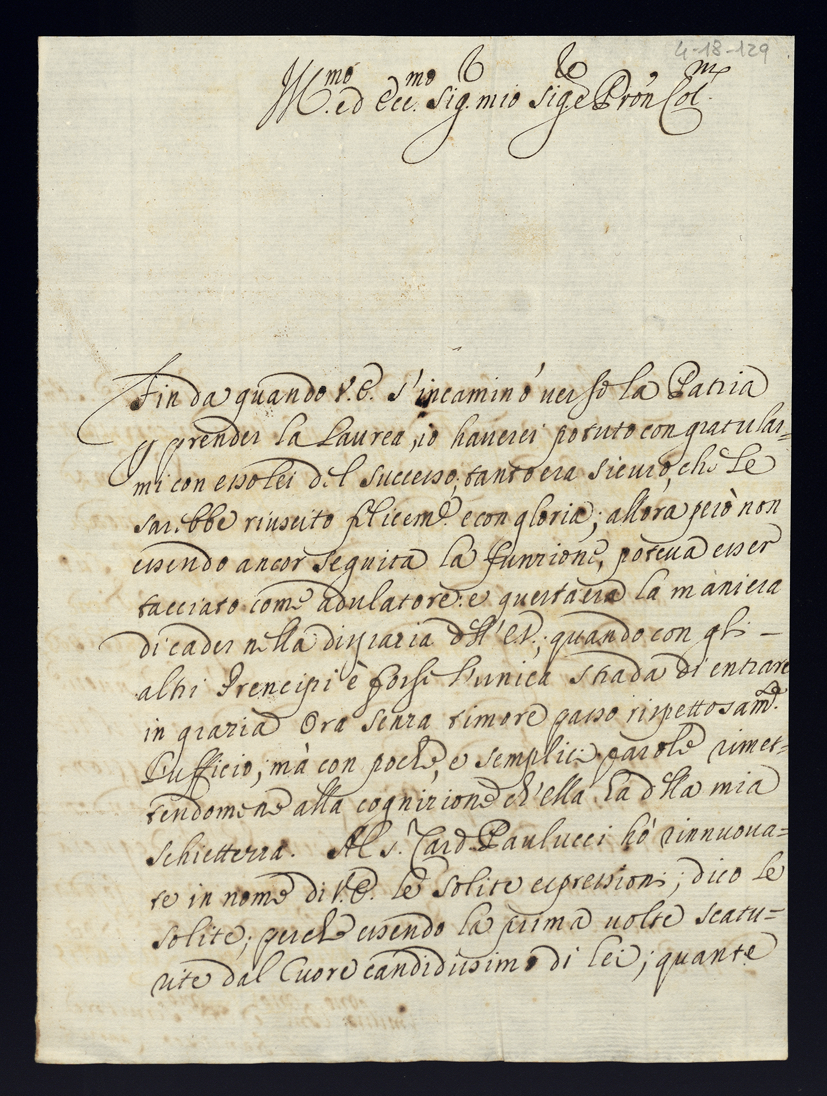 4-18-129
Ill.mo ed Ecc.mo Sig.r mio Sig.re e Pron Col.mo
Fin da quando V.E. s'incaminò verso la Patria
p prender la Laurea, io haverei potuto congratular=
mi con esso lei del successo; tanto era sicuro, che Le
sarebbe riuscito felicem.te e con gloria; allora però non
essendo ancor seguita la funzione, poteva esser
tacciato come adulatore: e questa era la maniera
di cader nella disgrazia dell'E.V.; quando con gli –
altri Prencipi è forse l'unica strada di entrare
in grazia. Ora senza timore passo rispettosam.te
l'ufficio, mà con poche, e semplici parole rimet=
tendomene alla cognizione ch'ella hà della mia
schiettezza. Al S. Card. Paulucci hò rinnuova=
te in nome di V.E. le solite espressioni; dico le
solite; perche essendo la prima volta scatu=
rite dal Cuore candidissimo di lei; quante